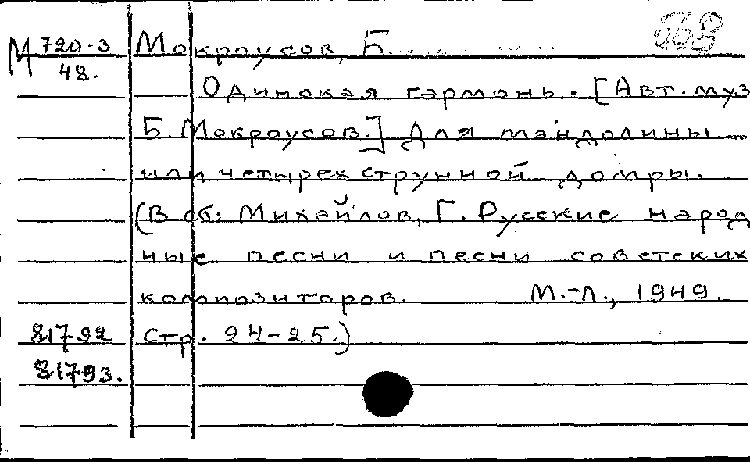 М 720-3 Мокроусов, Б.
48.
Одинокая гармонь. [Авт. муз
Б. Мокроусов.] Для мандолины
или четырехструнной домры.
(В сб: Михайлов, Г. Русские народ
ные песни и песни советских
композиторов. М.-Л., 1949.
81792 стр. 24-25.)
81793.